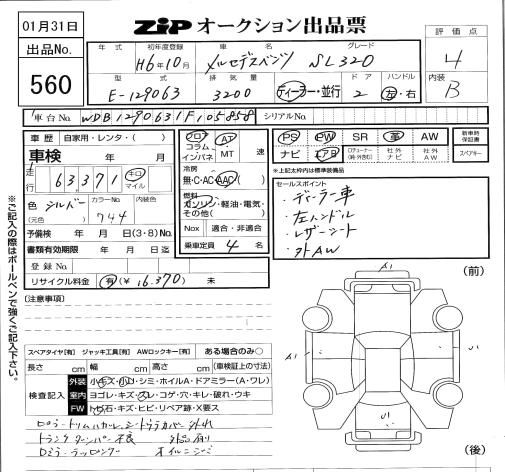 01月31日
ZIP オークション出品票
出品No.
560
年式 初年度登録 車名 グレード
H6年10月 メルセデスベンツ SL320
型式 排気量 ドア ハンドル
E-129063 3200 ディーラー・並行 2 左・右
評価点
4
内装
B
車台No. WDB1290631F105858 シリアルNo.
車歴 自家用・レンタ・( )
車検 年 月
走行 63,371 キロ マイル
色 シルバー カラーNo. 744 内装色
(元色)
予備検 年 月 日(3・8)No.
書類有効期限 年 月 日迄
登録No.
リサイクル料金 有(¥16,370) 未
フロア コラム インパネ AT MT 速
冷房
無・C・AC・AAC( )
燃料
ガソリン・軽油・電気・その他( )
Nox 適合・非適合
乗車定員 4 名
PS PW SR 革 AW
ナビ エアB 社外ナビ 社外AW
新車時保証書
スペアキー
※上記太枠内は標準装備品
セールスポイント
・ディーラー車
・左ハンドル
・レザーシート
・外AW
※ご記入の際はボールペンで強くご記入下さい。
(注意事項)
スペアタイヤ[有] ジャッキ工具[有] AWロックキー[有] ある場合のみ○
長さ cm 幅 cm 高さ cm (車検証上の寸法)
検査記入
外装 小キズ・小凹・シミ・ホイルA・ドアミラー(A・ワレ)
室内 ヨゴレ・キズ・スレ・コゲ・穴・キレ・破れ・ウキ
FW トビ石・キズ・ヒビ・リペア跡・X要ス
トランクダンパー不良
オイルニジミ
(前)
A1
A1
(後)